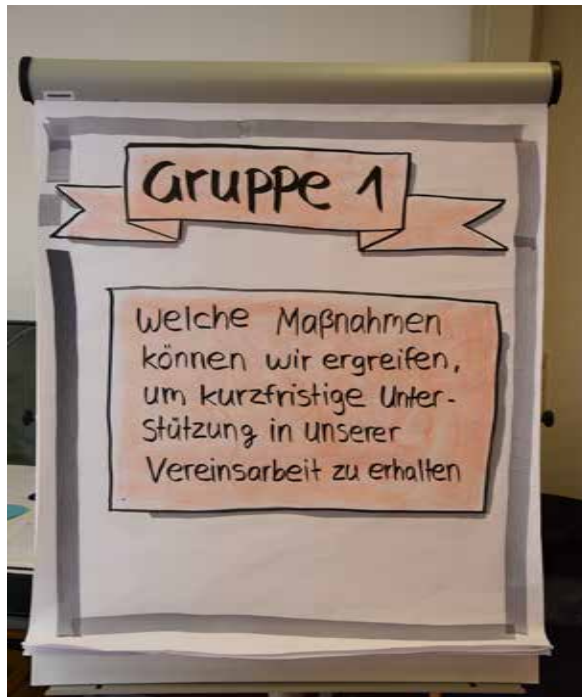 Gruppe 1
Welche Maßnahmen
können wir ergreifen,
um kurzfristige Unter-
stützung in unserer
Vereinsarbeit zu erhalten